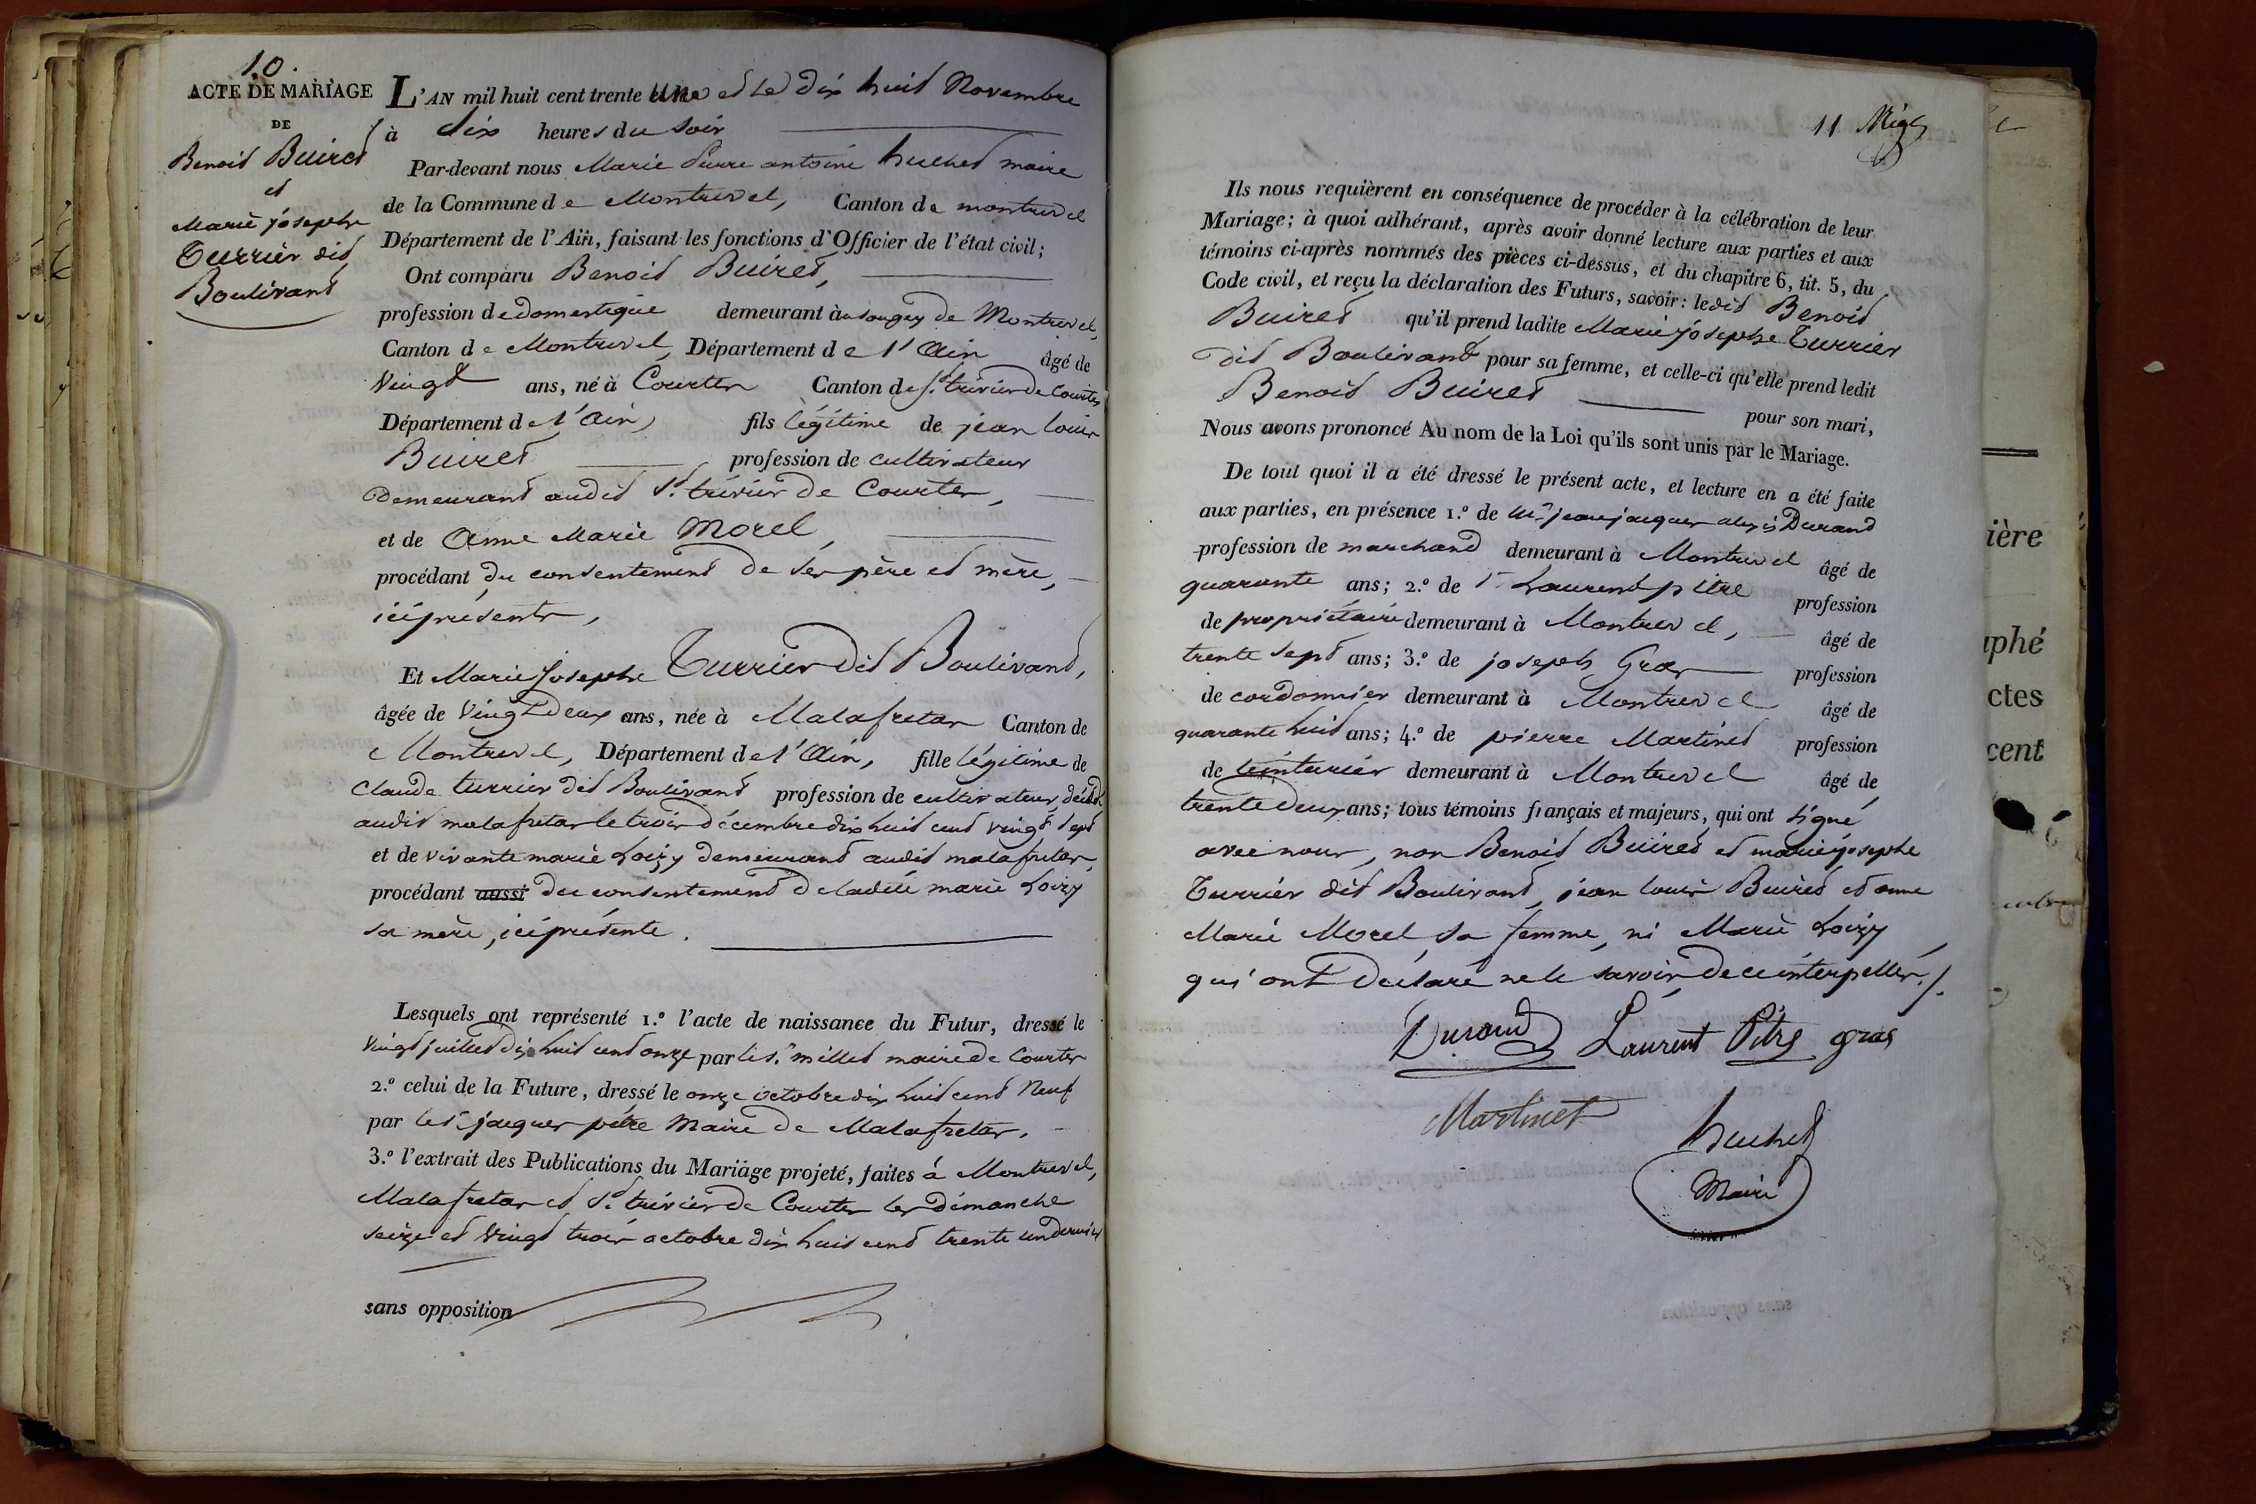 10.
ACTE DE MARIAGE
DE
Benoit Buiret
et
Marie josephe
Turrier dit
Boulivant
L'AN mil huit cent trente une et le dix huit Novembre
à dix heures du soir
Par-devant nous Marie Pierre antoine huchet maire
de la Commune de Montrevel, Canton de montrevel
Département de l'Ain, faisant les fonctions d'Officier de l'état civil;
Ont comparu Benoit Buiret,
profession de domestique demeurant à au Sougey de Montrevel,
Canton de Montrevel, Département de l'Ain âgé de
vingt ans, né à Courtes Canton de St. trivier de Courtes
Département de l'Ain, fils légitime de jean louis
Buiret profession de cultivateur
demeurant audit St. trivier de Courtes,
et de Anne Marie Morel,
procédant du consentement de ses père et mère,
ici présents,
Et Marie Josephe Turrier dit Boulivant,
âgée de vingt deux ans, née à Malafretas Canton de
Montrevel, Département de l'Ain, fille légitime de
Claude turrier dit Boulivant profession de cultivateur, décédé
audit malafretas le trois décembre dix huit cent vingt sept
et de vivante marie Loizy demeurant audit malafretas,
procédant aussi du consentement de ladite marie Loizy
sa mère, ici présente.
Lesquels ont représenté 1.º l'acte de naissance du Futur, dressé le
vingt juillet dix huit cent onze par le sr. millet maire de Courtes
2.º celui de la Future, dressé le onze octobre dix huit cent Neuf
par le sr jacques pitre Maire de Malafretas.
3.º l'extrait des Publications du Mariage projeté, faites à Montrevel,
Malafretas et St. trivier de Courtes les dimanche
seize et vingt trois octobre dix huit cent trente un dernier
sans opposition
11
Ils nous requièrent en conséquence de procéder à la célébration de leur
Mariage; à quoi adhérant, après avoir donné lecture aux parties et aux
témoins ci-après nommés des pièces ci-dessus, et du chapitre 6, tit. 5, du
Code civil, et reçu la déclaration des Futurs, savoir: ledit Benoit
Buiret qu'il prend ladite Marie josephe Turrier
dit Boulivant pour sa femme, et celle-ci qu'elle prend ledit
Benoit Buiret pour son mari,
Nous avons prononcé Au nom de la Loi qu'ils sont unis par le Mariage.
De tout quoi il a été dressé le présent acte, et lecture en a été faite
aux parties, en présence 1.º de Mr. jean jacques alexis Durand
profession de marchand demeurant à Montrevel âgé de
quarante ans; 2.º de Sr Laurent pitre profession
de propriétaire demeurant à Montrevel, âgé de
trente sept ans; 3.º de joseph Gras profession
de cordonnier demeurant à Montrevel âgé de
quarante huit ans; 4.º de pierre Martinet profession
de teinturier demeurant à Montrevel âgé de
trente deux ans; tous témoins français et majeurs, qui ont signé
avec nous, non Benoit Buiret et marie josephe
Turrier dit Boulivant, jean louis Buiret et anne
Marie Morel sa femme, ni Marie Loizy
qui ont déclaré ne le savoir de ce interpellés./.
Durand Laurent Pitre gras
Martinet
huchet
Maire
ière
aphé
ctes
cent